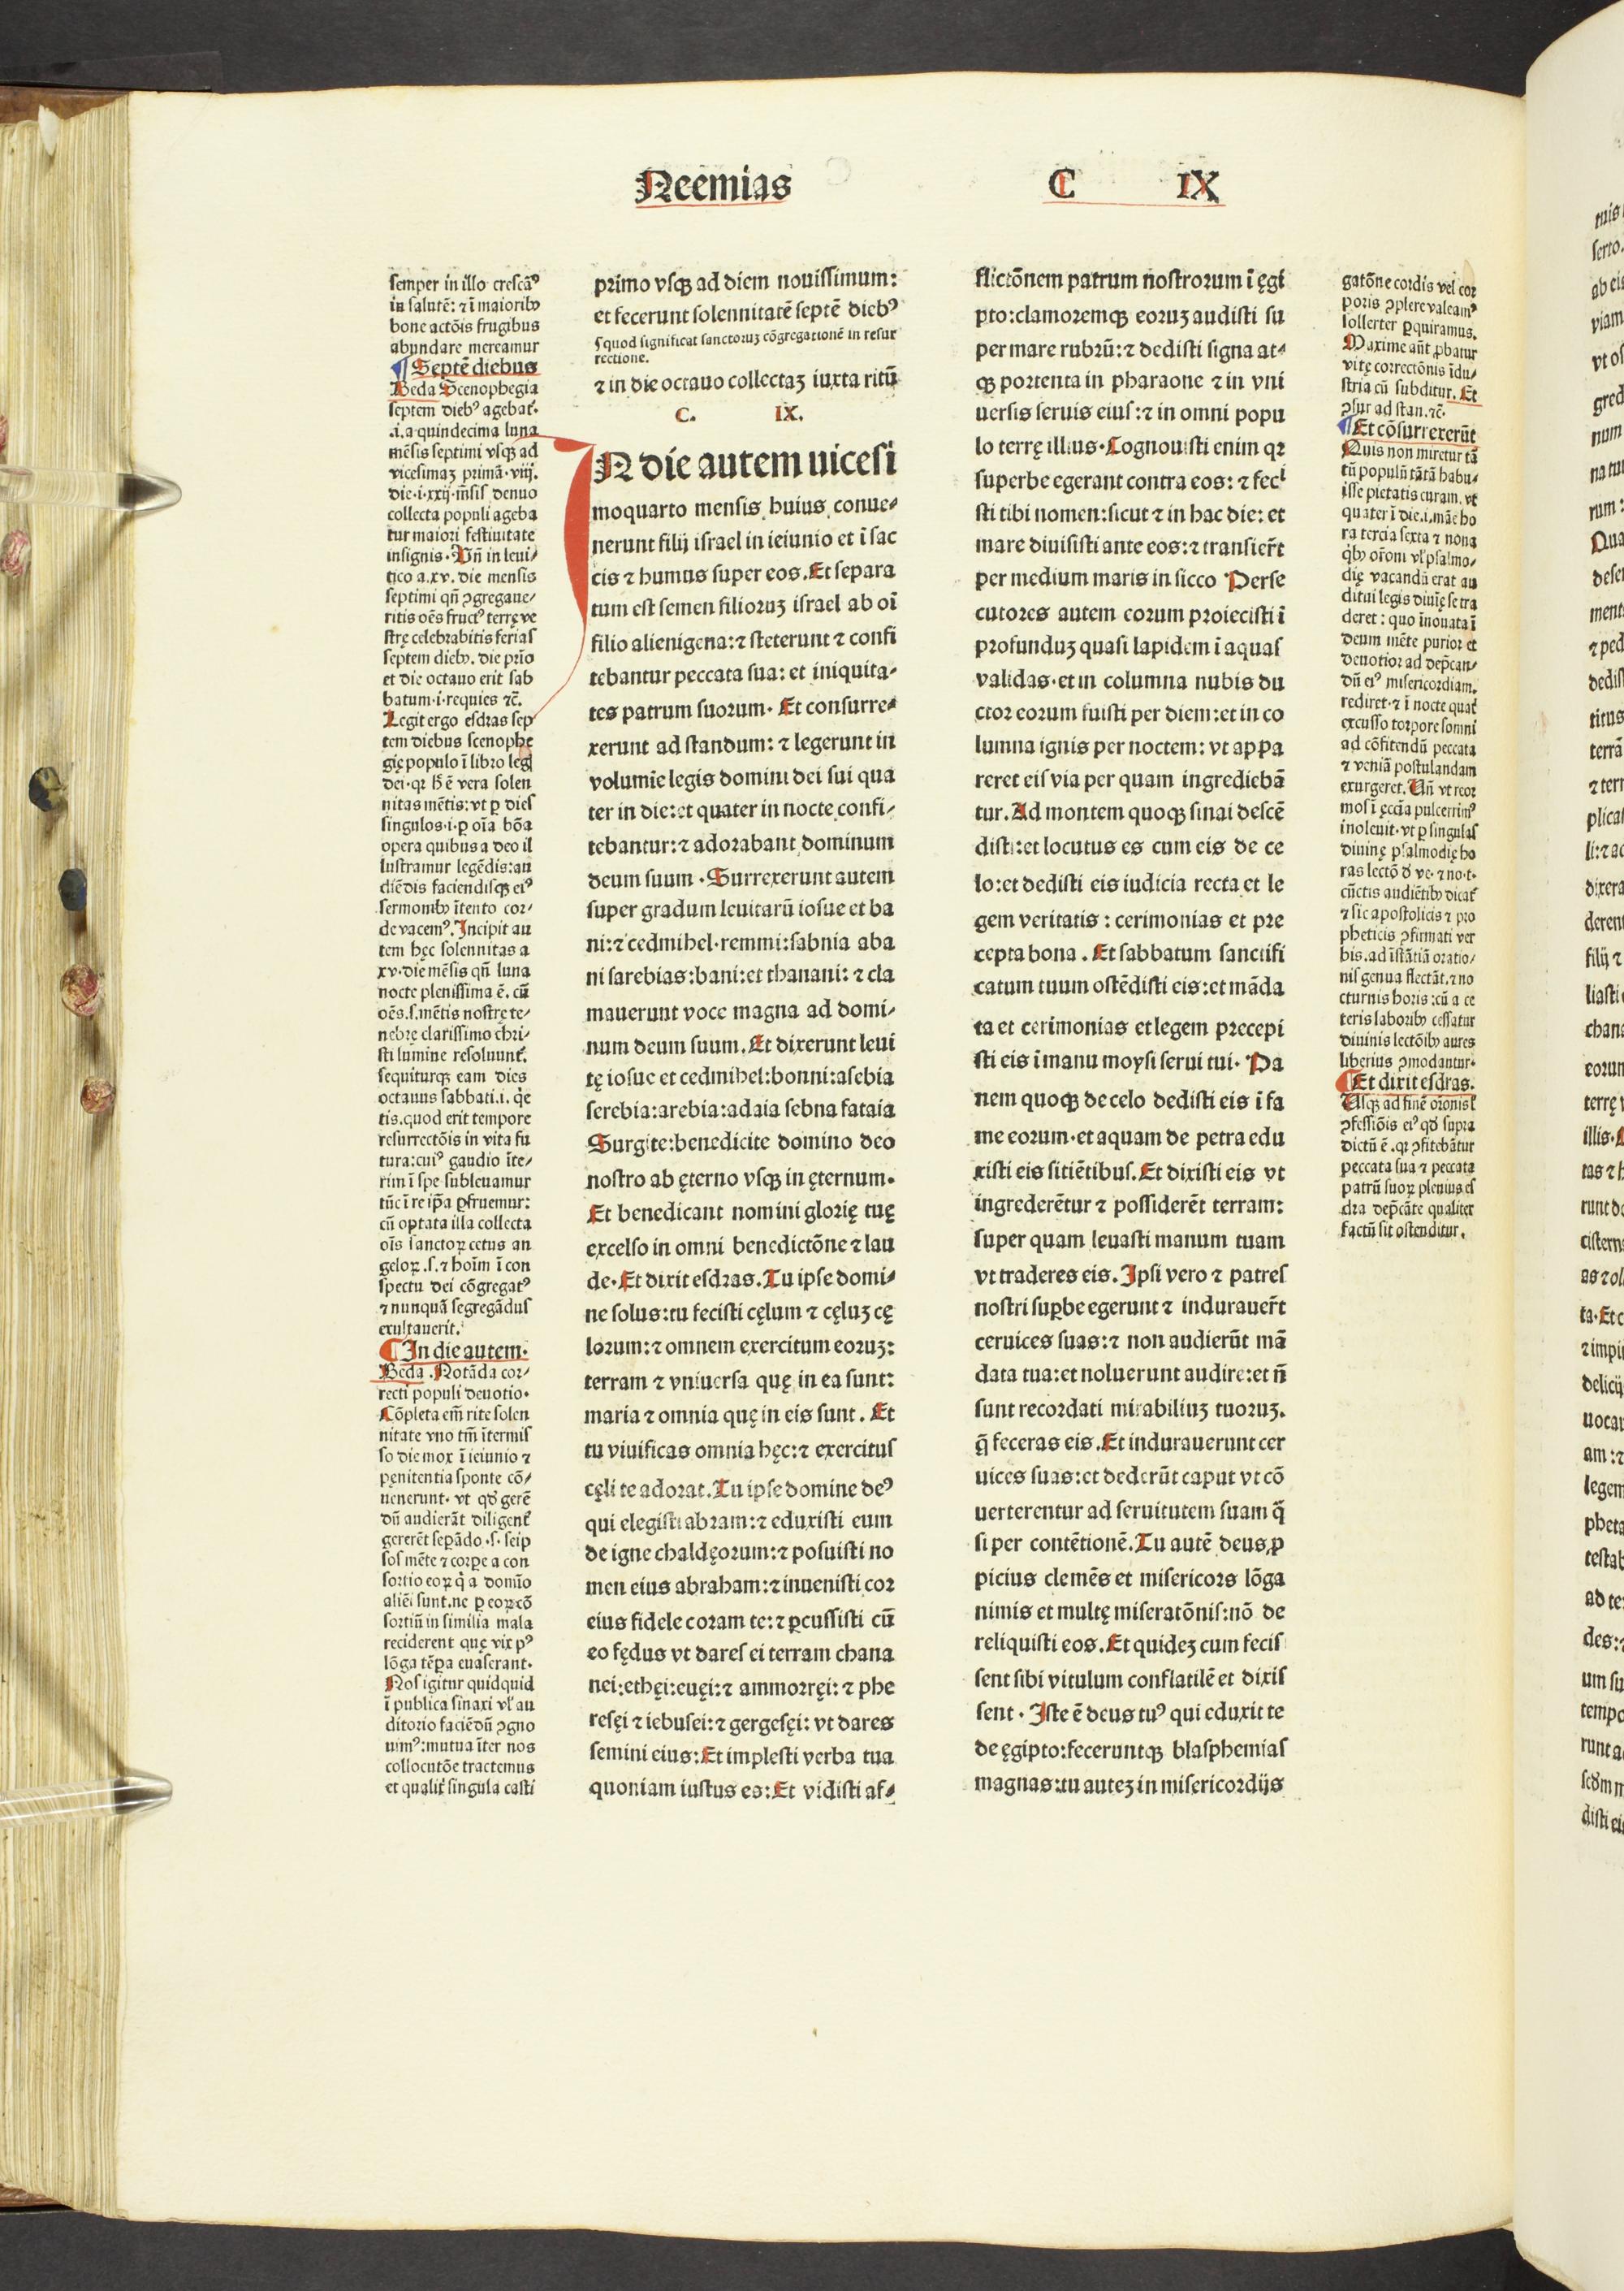 Neemias
C IX
semper in illo crescãꝰ
in salutẽ: ⁊ ĩ maioribꝫ
bone actõis frugibus
abundare mereamur
¶ Septẽ diebus
Beda Scenophegia
septem diebꝰ agebat̃.
.i. a quindecima luna
mẽsis septimi vsqꝫ ad
vicesimaꝫ primã. viij.
die .i. xxij. m̃sis denuo
collecta populi ageba
tur maiori festiuitate
insignis. Vñ in leui⸗
tico a. xv. die mensis
septimi qñ ꝯgregaue⸗
ritis oẽs fructꝰ terrę ve
strę celebrabitis ferias
septem diebꝫ. die prĩo
et die octauo erit sab
batum .i. requies ⁊c̃.
Legit ergo esdras sep
tem diebus scenophe
gię populo ĩ libro legĩ
dei. qꝛ h̃ ẽ vera solen
nitas mẽtis: vt ꝑ dies
singulos .i. ꝑ oĩa bõa
opera quibus a deo il
lustramur legẽdis: au
diẽdis faciendisqꝫ eiꝰ
sermonibꝫ ĩtento cor⸗
de vacemꝰ. Incipit au
tem hęc solennitas a
xv. die mẽsis qñ luna
nocte plenissima ẽ. cũ
oẽs .s. mẽtis nostrę te⸗
nebrę clarissimo chri⸗
sti lumine resoluunt̃.
sequiturqꝫ eam dies
octauus sabbati .i. q̃e
tis. quod erit tempore
resurrectõis in vita fu
tura: cuiꝰ gaudio ĩte⸗
rim ĩ spe subleuamur
tũc ĩ re ip̃a ꝑfruemur:
cũ optata illa collecta
oĩs sanctoꝝ cetus an
geloꝝ .s. ⁊ hoĩm ĩ con
spectu dei cõgregatꝰ
⁊ nunquã segregãdus
exultauerit.
¶ In die autem.
Beda. Notãda cor⸗
recti populi deuotio.
Cõpleta em̃ rite solen
nitate vno tm̃ ĩtermis
so die mox ĩ ieiunio ⁊
pęnitentia sponte cõ⸗
uenerunt. vt qđ gerẽ
dũ audierãt diligent̃
gererẽt sepãdo .s. seip
sos mẽte ⁊ corꝑe a con
sortio eoꝝ q̃ a domĩo
aliẽi sunt. ne ꝑ eoꝝ cõ
sortiũ in similia mala
reciderent quę vix pꝰ
lõga tẽꝑa euaserant.
Nos igitur quidquid
ĩ publica sinaxi vl̃ au
ditorio faciẽdũ ꝯgno
uimꝰ: mutua ĩter nos
collocutõe tractemus
et qualit̃ singula casti
primo vsqꝫ ad diem nouissimum:
et fecerunt solennitatẽ septẽ diebꝰ
s quod significat sanctoruꝫ cõgregationẽ in resur
rectione.
⁊ in die octauo collectaꝫ iuxta ritũ
C. IX.
IN die autem uicesi
moquarto mensis huius conue⸗
nerunt filij israel in ieiunio et ĩ sac
cis ⁊ humus super eos. Et separa
tum est semen filioruꝫ israel ab oĩ
filio alienigena: ⁊ steterunt ⁊ confi
tebantur peccata sua: et iniquita⸗
tes patrum suorum. Et consurre⸗
xerunt ad standum: ⁊ legerunt in
volumĩe legis domini dei sui qua
ter in die: et quater in nocte confi⸗
tebantur: ⁊ adorabant dominum
deum suum. Surrexerunt autem
super gradum leuitarũ iosue et ba
ni: ⁊ cedmihel. remmi: sabnia aba
ni sarebias: bani: et thanani: ⁊ cla
mauerunt voce magna ad domi⸗
num deum suum. Et dixerunt leui
tę iosue et cedmihel: bonni: asebia
serebia: arebia: adaia sebna fataia
Surgite: benedicite domino deo
nostro ab ęterno vsqꝫ in ęternum.
Et benedicant nomini glorię tuę
excelso in omni benedictõne ⁊ lau
de. Et dixit esdras. Tu ipse domi⸗
ne solus: tu fecisti cęlum ⁊ cęluꝫ cę
lorum: ⁊ omnem exercitum eoruꝫ:
terram ⁊ vniuersa quę in ea sunt:
maria ⁊ omnia quę in eis sunt. Et
tu viuificas omnia hęc: ⁊ exercitus
cęli te adorat. Tu ipse domine deꝰ
qui elegisti abram: ⁊ eduxisti eum
de igne chaldęorum: ⁊ posuisti no
men eius abraham: ⁊ inuenisti cor
eius fidele coram te: ⁊ ꝑcussisti cũ
eo fędus vt dares ei terram chana
nei: ethęi: euęi: ⁊ ammorręi: ⁊ phe
resęi ⁊ iebusei: ⁊ gergesęi: vt dares
semini eius: Et implesti verba tua
quoniam iustus es: Et vidisti af⸗
flictõnem patrum nostrorum ĩ ęgi
pto: clamoremqꝫ eoruꝫ audisti su
per mare rubrũ: ⁊ dedisti signa at⸗
qꝫ portenta in pharaone ⁊ in vni
uersis seruis eius: ⁊ in omni popu
lo terrę illius. Cognouisti enim qꝛ
superbe egerant contra eos: ⁊ feci
sti tibi nomen: sicut ⁊ in hac die: et
mare diuisisti ante eos: ⁊ transier̃t
per medium maris in sicco Perse
cutores autem eorum proiecisti ĩ
profunduꝫ quasi lapidem ĩ aquas
validas. et in columna nubis du
ctor eorum fuisti per diem: et in co
lumna ignis per noctem: vt appa
reret eis via per quam ingrediebã
tur. Ad montem quoqꝫ sinai descẽ
disti: et locutus es cum eis de ce
lo: et dedisti eis iudicia recta et le
gem veritatis: cerimonias et pre
cepta bona. Et sabbatum sanctifi
catum tuum ostẽdisti eis: et mãda
ta et cerimonias et legem precepi
sti eis ĩ manu moysi serui tui. Pa
nem quoqꝫ de celo dedisti eis ĩ fa
me eorum. et aquam de petra edu
xisti eis sitiẽtibus. Et dixisti eis vt
ingrederẽtur ⁊ possiderẽt terram:
super quam leuasti manum tuam
vt traderes eis. Ipsi vero ⁊ patres
nostri suꝑbe egerunt ⁊ indurauer̃t
ceruices suas: ⁊ non audierũt mã
data tua: et noluerunt audire: et ñ
sunt recordati mirabiliuꝫ tuoruꝫ.
q̃ feceras eis. Et indurauerunt cer
uices suas: et dederũt caput vt cõ
uerterentur ad seruitutem suam q̃
si per contẽtionẽ. Tu autẽ deus ꝓ
picius clemẽs et misericors lõga
nimis et multę miseratõnis: nõ de
reliquisti eos. Et quideꝫ cum fecis
sent sibi vitulum conflatilẽ et dixis
sent. Iste ẽ deus tuꝰ qui eduxit te
de ęgipto: feceruntqꝫ blasphemias
magnas: tu auteꝫ in misericordijs
gatõne cordis vel cor
poris ꝯplere valeamꝰ
sollerter ꝑquiramus.
Maxime aũt ꝓbatur
vitę correctõnis ĩdu⸗
stria cũ subditur. Et
ꝯsur ad stan. ⁊c̃.
¶ Et cõsurrexerũt
Quis non miretur tã
tũ populũ tãtã habu⸗
isse pietatis curam. vt
quater ĩ die .i. mãe ho
ra tercia sexta ⁊ nona
q̃bꝫ or̃oni vl̃ psalmo⸗
dię vacandũ erat au
ditui legis diuĩę se tra
deret: quo ĩnouata ĩ
deum mẽte purior et
deuotior ad dep̃can⸗
dũ eiꝰ misericordiam.
rediret. ⁊ ĩ nocte quat̃
excusso torpore somni
ad cõfitendũ peccata
⁊ veniã postulandam
exurgeret. Vñ vt reor
mos ĩ ęcc̃ia pulcerrimꝰ
inoleuit. vt ꝑ singulas
diuinę psalmodię ho
ras lectõ đ ve. ⁊ no. t.
cũctis audiẽtibꝫ dicat̃
⁊ sic apostolicis ⁊ pro
pheticis ꝯfirmati ver
bis. ad ĩstãtiã oratio⸗
nis genua flectãt. ⁊ no
cturnis horis: cũ a ce
teris laboribꝫ cessatur
diuinis lectõibꝫ aures
liberius ꝯmodantur.
¶ Et dixit esdras.
Vsqꝫ ad finẽ or̃onis ł
ꝯfessiõis eiꝰ qđ supra
dictũ ẽ. qꝛ ꝯfitebãtur
peccata sua ⁊ peccata
patrũ suoꝝ plenius es
dra dep̃cãte qualiter
factũ sit ostenditur.